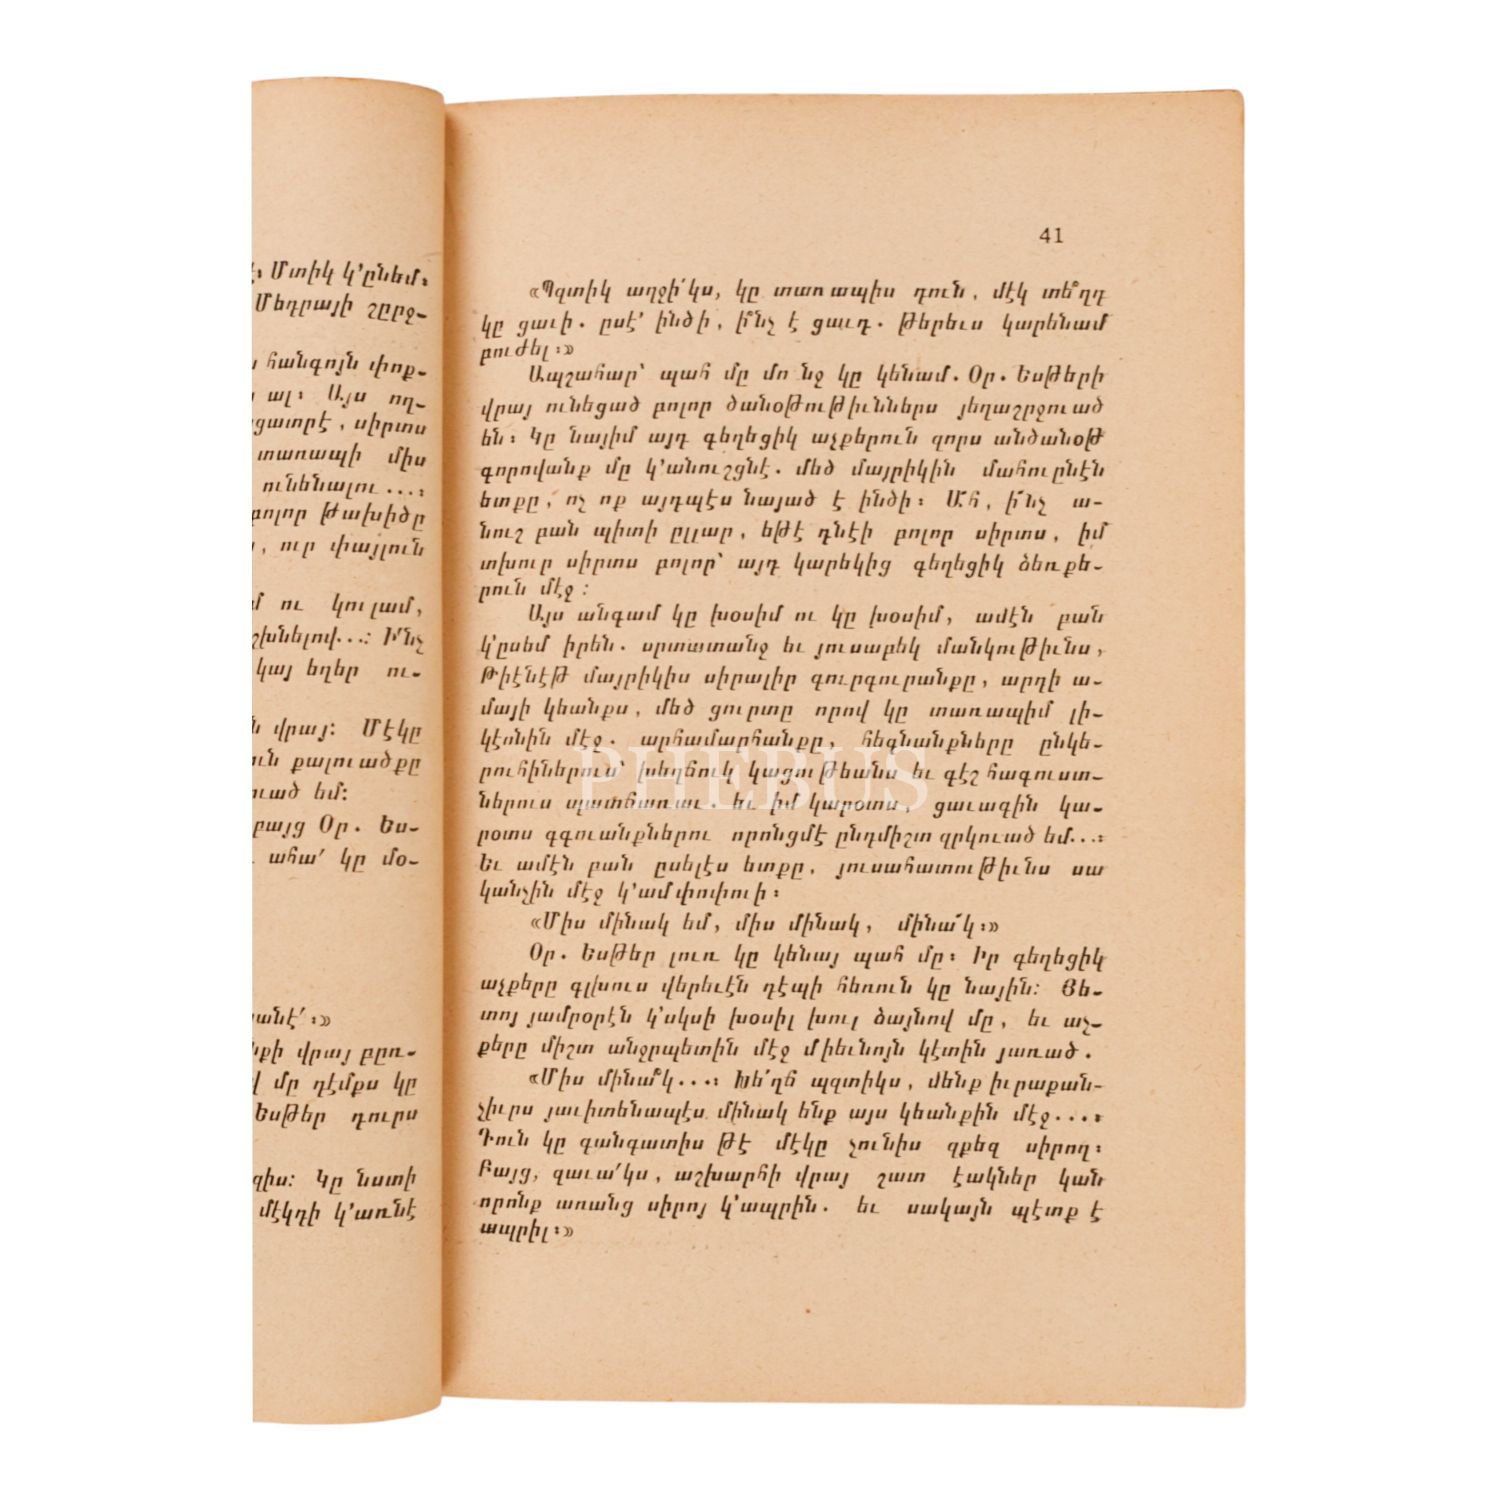 է։ Մտիկ կ՚ընեմ։
Մեդրայի շըրջ-
հանգոյն փոք-
ալ։ Այս ող-
ցատրէ, սիրտս
տառապի միս
ունենալու...։
բոլոր թախիծը
, ուր փայլուն
մ ու կուլամ,
շխնելով...։ Ի՞նչ
կայ եղեր ու-
ն վրայ։ Մէկը
ուն քալուածքը
ուած եմ։
բայց Օր. Ես-
ահա՛ կը մօ-
անէ՛։»
նքի վրայ բըռ-
մը դէմքս կը
Եսթեր դուրս
զիս։ Կը նստի
մէկդի կ՚առնէ
41
«Պզտիկ աղջի՛կս, կը տառապիս դուն, մէկ տե՞ղդ
կը ցաւի. ըսէ՛ ինծի, ի՞նչ է ցաւդ. թերեւս կարենամ
բուժել։»
Ապշահար՝ պահ մը մունջ կը կենամ. Օր. Եսթերի
վրայ ունեցած բոլոր ծանօթութիւններս յեղաշրջուած
են։ Կը նայիմ այդ գեղեցիկ աչքերուն զորս անծանօթ
գորովանք մը կ՚անուշցնէ. մեծ մայրիկին մահուընէն
ետքը, ոչ ոք այդպէս նայած է ինծի։ Ահ, ի՜նչ ա-
նուշ բան պիտի ըլլար, եթէ դնէի բոլոր սիրտս, իմ
տխուր սիրտս բոլոր՝ այդ կարեկից գեղեցիկ ձեռքե-
րուն մէջ։
Այս անգամ կը խօսիմ ու կը խօսիմ, ամէն բան
կ՚ըսեմ իրեն. սրտատանջ եւ յուսաբեկ մանկութիւնս,
Թիէնէթ մայրիկիս սիրալիր գուրգուրանքը, արդի ա-
մայի կեանքս, մեծ ցուրտը որով կը տառապիմ լի-
կէոնին մէջ. արհամարհանքը, հեգնանքները ընկե-
րուհիներուս՝ խեղճուկ կացութեանս եւ գէշ հագուստ-
ներուս պատճառաւ. եւ իմ կարօտս, ցաւագին կա-
րօտս գգուանքներու որոնցմէ ընդմիշտ զրկուած եմ...։
Եւ ամէն բան ըսելէս ետքը, յուսահատութիւնս սա
կանչին մէջ կ՚ամփոփուի։
«Միս մինակ եմ, միս մինակ, մինա՜կ։»
Օր. Եսթեր լուռ կը կենայ պահ մը։ Իր գեղեցիկ
աչքերը գլխուս վերեւէն դէպի հեռուն կը նային։ Յե-
տոյ յամրօրէն կ՚սկսի խօսիլ խուլ ձայնով մը, եւ աչ-
քերը միշտ անջրպետին մէջ միեւնոյն կէտին յառած.
«Միս մինա՞կ...։ Խե՜ղճ պզտիկս, մենք իւրաքան-
չիւրս յաւիտենապէս մինակ ենք այս կեանքին մէջ...։
Դուն կը գանգատիս թէ մէկը չունիս զքեզ սիրող։
Բայց, զաւա՛կս, աշխարհի վրայ շատ էակներ կան
որոնք առանց սիրոյ կ՚ապրին. եւ սակայն պէտք է
ապրիլ։»
PHEBUS